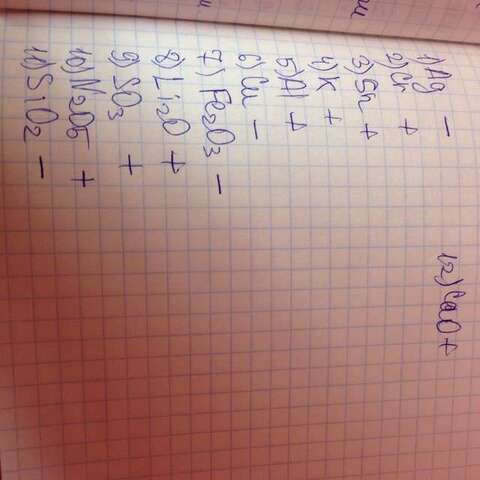 1) Ag –
2) Cr +
3) Sn +
4) K +
5) Al +
6) Cu –
7) Fe2O3 –
8) Li2O +
9) SO3 +
10) N2O5 +
11) SiO2 –
12) CaO +